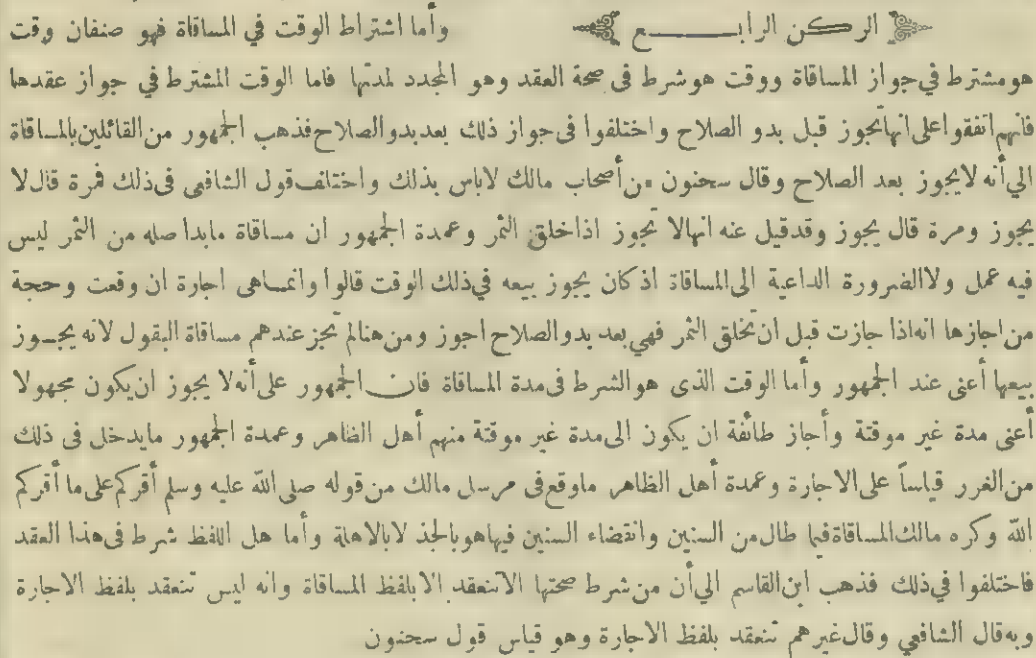 الركن الرابـــع وأما اشتراط الوقت في المساقاة فهو صنفان وقت
هو مشترط في جواز المساقاة ووقت هو شرط في صحة العقد وهو المجدد لمدتها فاما الوقت المشترط في جواز عقدها
فانهم اتفقوا على انها تجوز قبل بدو الصلاح واختلفوا في جواز ذلك بعد بدو الصلاح فذهب الجمهور من القائلين بالمساقاة
الي أنه لا يجوز بعد الصلاح وقال سحنون من أصحاب مالك لا باس بذلك واختلف قول الشافعي في ذلك فمرة قال لا
يجوز ومرة قال يجوز وقد قيل عنه انها لا تجوز اذا خلق الثمر وعمدة الجمهور ان مساقاة ما بدا صله من الثمر ليس
فيه عمل ولا الضرورة الداعية الى المساقاة اذ كان يجوز بيعه في ذلك الوقت قالوا وانمــا هى اجارة ان وقعت وحجة
من اجازها انه اذا جازت قبل ان تخلق الثمر فهي بعد بدو الصلاح اجوز ومن هنا لم تجز عندهم مساقاة البقول لانه يجــوز
بيعها أعنى عند الجمهور وأما الوقت الذى هو الشرط في مدة المساقاة فان الجمهور على أنه لا يجوز ان يكون مجهولا
أعنى مدة غير موقتة وأجاز طائفة ان يكون الى مدة غير موقتة منهم أهل الظاهر وعمدة الجمهور ما يدخل فى ذلك
من الغرر قياساً على الاجارة وعمدة أهل الظاهر ما وقع فى مرسل مالك من قوله صلى الله عليه وسلم أقركم على ما أقركم
الله وكره مالك المساقاة فيما طال من السنين وانقضاء السنين فيها هو بالجذ لا بالاهلة وأما هل اللفظ شرط فى هذا العقد
فاختلفوا في ذلك فذهب ابن القاسم الي أن من شرط صحتها الا تنعقد الا بلفظ المساقاة وانه ليس تنعقد بلفظ الاجارة
وبه قال الشافعي وقال غيرهم تنعقد بلفظ الاجارة وهو قياس قول سحنون